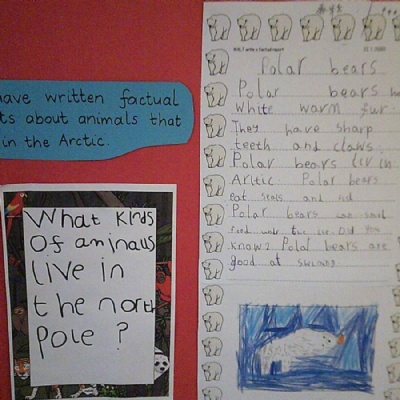 have written factual
ts about animals that
in the Arctic.
What kinds
Of animalls
live in
the north
pole ?
WALT write a factual report
Polar bears
Polar bears
white warm fur.
They have sharp
teeth and claws.
Polar bears liv in
Arctic Polar bears
eat seals and
Polar bears can smel
food the ice. Did you
know? Polal bears are
good at